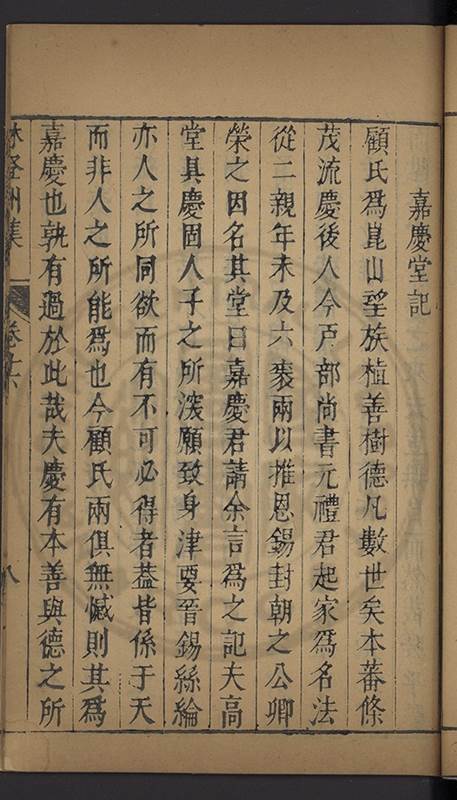 嘉慶堂記
顧氏爲崑山望族植善樹德凡數世矣本蕃條
茂流慶後人今戸部尚書元禮君起家爲名法
從二親年未及六袠兩以推恩錫封朝之公卿
榮之因名其堂曰嘉慶君請余言爲之記夫高
堂具慶固人子之所深願致身津要晉錫絲綸
亦人之所同欲而有不可必得者葢皆係于天
而非人之所能爲也今顧氏兩俱無憾則其爲
嘉慶也孰有過於此哉夫慶有本善與德之所
集 卷 八